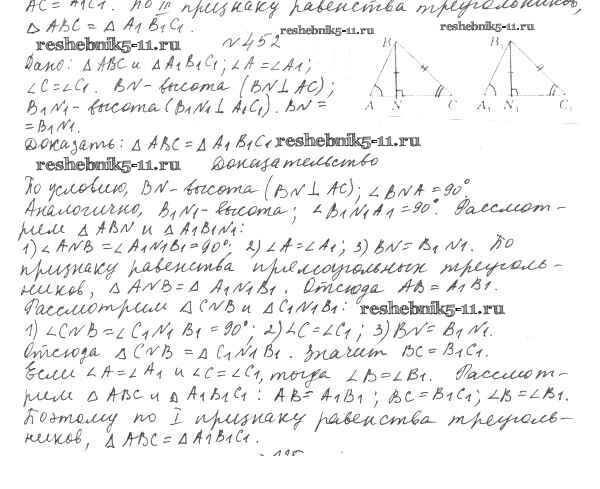 AC = A1C1. По III признаку равенства треугольников,
△ ABC = △ A1 B1C1.
reshebnik5-11.ru
reshebnik5-11.ru
reshebnik5-11.ru
№ 452
Дано: △ ABC и △ A1B1C1; ∠A = ∠A1;
∠C = ∠C1. BN - высота (BN ⊥ AC);
B1N1 - высота (B1N1 ⊥ A1C1). BN =
= B1N1.
B
B1
A N C
A1 N1 C1
Доказать: △ ABC = △ A1 B1C1 reshebnik5-11.ru
reshebnik5-11.ru Доказательство
По условию, BN - высота (BN ⊥ AC); ∠BNA = 90°
Аналогично, B1N1 - высота; ∠B1N1A1 = 90°. Рассмот-
рим △ ABN и △ A1B1N1:
1) ∠ANB = ∠A1N1B1 = 90°; 2) ∠A = ∠A1; 3) BN = B1 N1. По
признаку равенства прямоугольных треуголь-
ников, △ ANB = △ A1N1B1. Отсюда AB = A1B1.
Рассмотрим △ CNB и △ C1N1B1: reshebnik5-11.ru
1) ∠CNB = ∠C1N1 B1 = 90°; 2) ∠C = ∠C1; 3) BN = B1N1.
Отсюда △ CNB = △ C1N1B1. Значит BC = B1C1.
Если ∠A = ∠A1 и ∠C = ∠C1, тогда ∠B = ∠B1. Рассмот-
рим △ ABC и △ A1B1C1: AB = A1B1; BC = B1C1; ∠B = ∠B1.
Поэтому по I признаку равенства треуголь-
ников, △ ABC = △ A1B1C1.